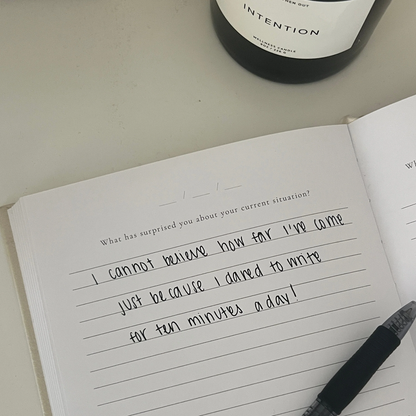 INTENTION
WELLNESS CANDLE
__ / __ / __
What has surprised you about your current situation?
I cannot believe how far I've come
just because I dared to write
for ten minutes a day!